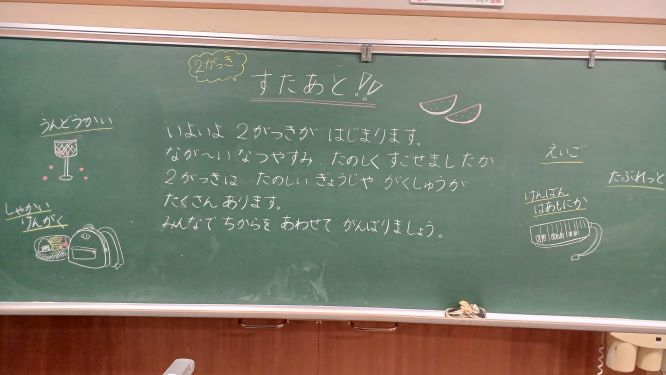 2がっき
すたあと!!
うんどうかい
しゃかい
けんがく
いよいよ 2がっきが はじまります。
なが〜い なつやすみ たのしく すごせましたか
2がっきは たのしい ぎょうじや がくしゅうが
たくさん あります。
みんなで ちからを あわせて がんばりましょう。
えいご
けんばん
はあもにか
たぶれっと